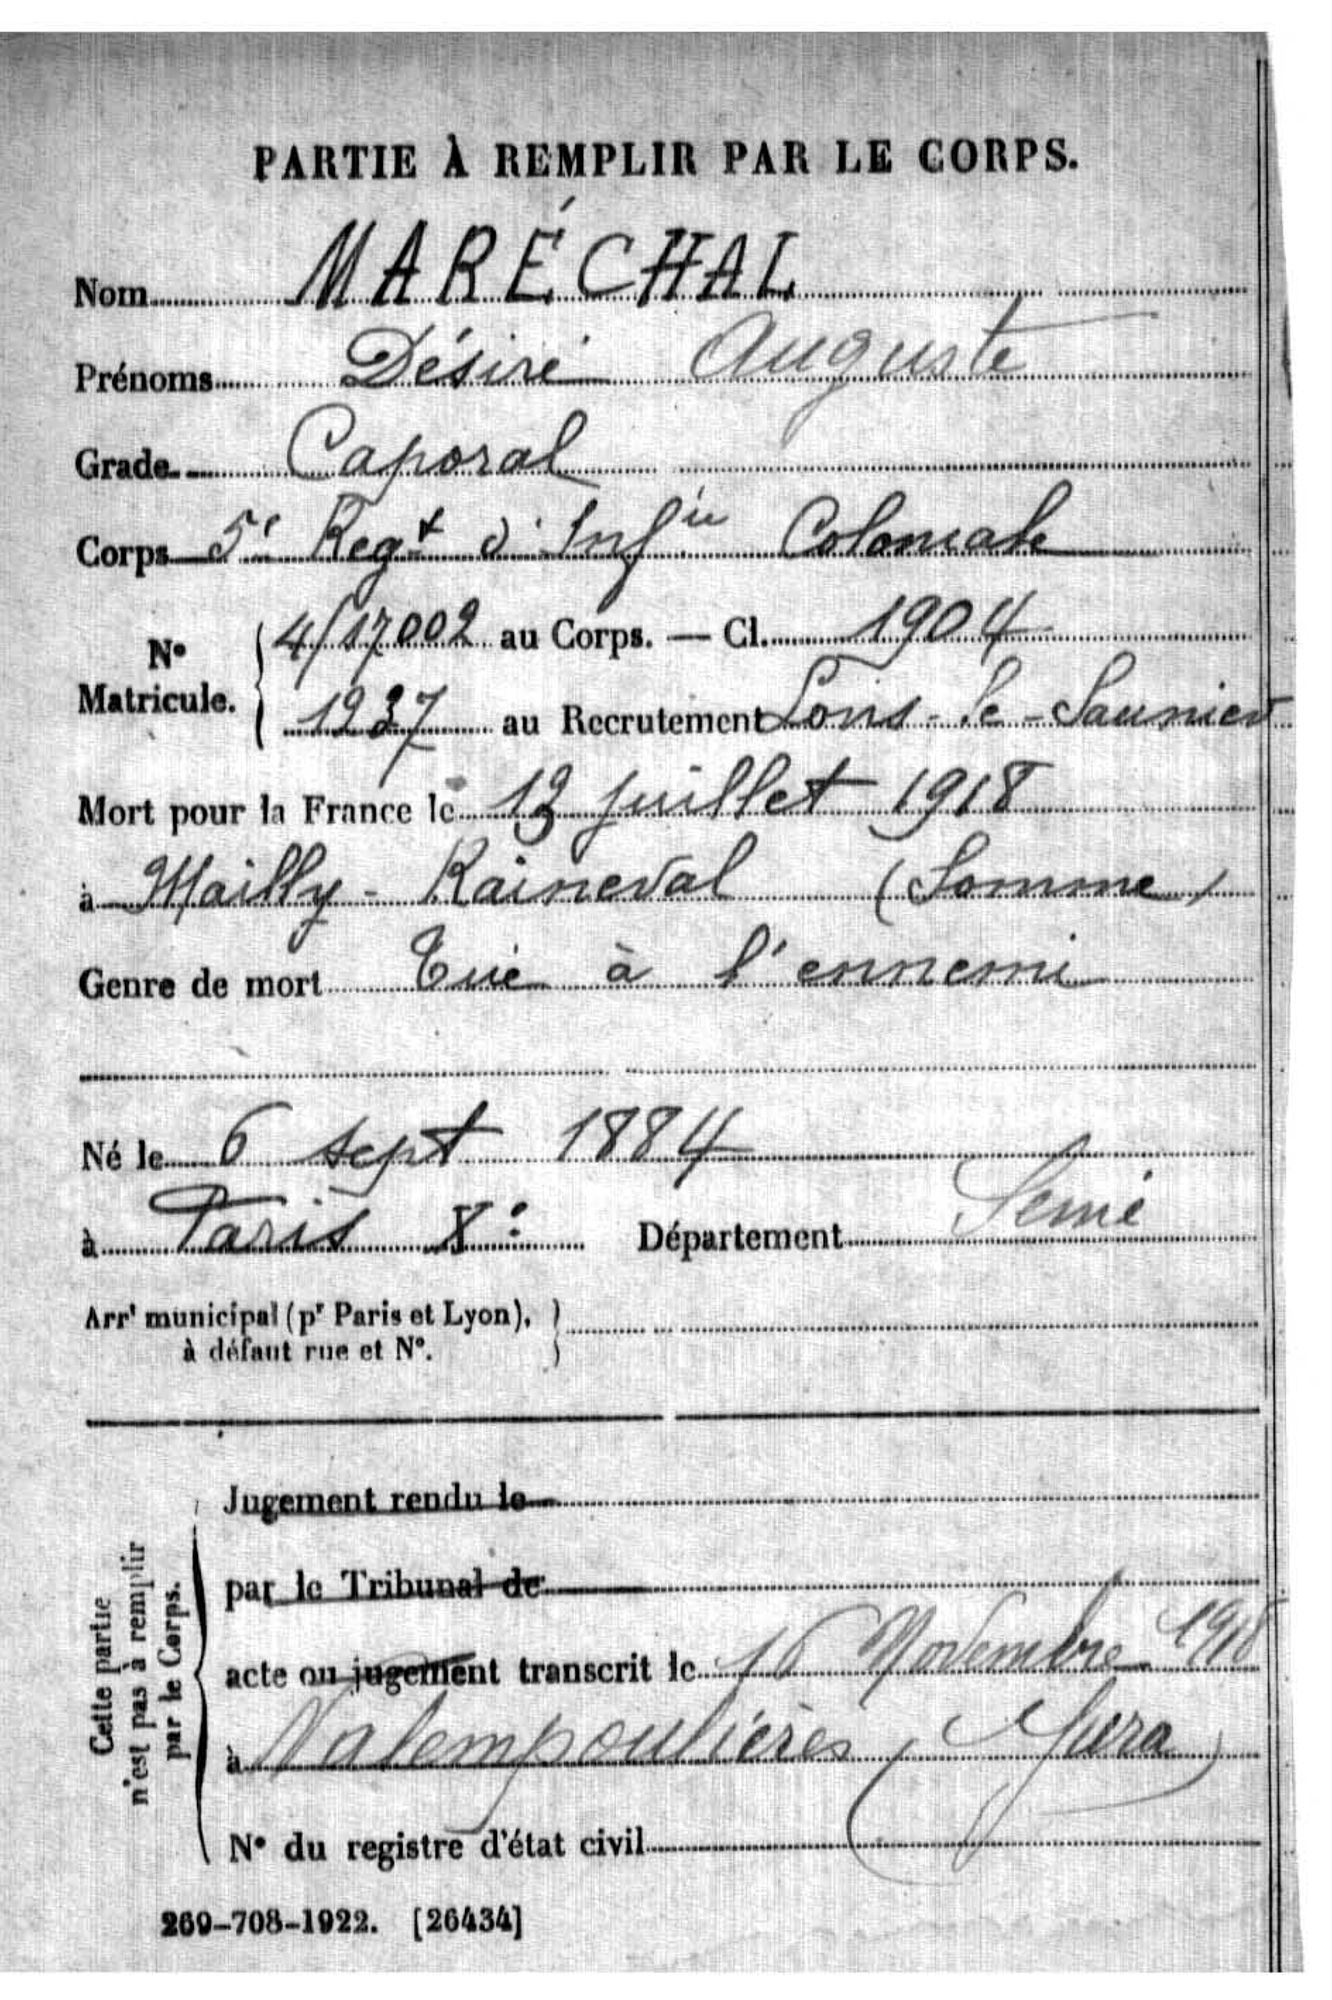 PARTIE À REMPLIR PAR LE CORPS.
Nom MARÉCHAL
Prénoms Désiré Auguste
Grade Caporal
Corps 5e Regt d'Infie Coloniale
No Matricule. 4/17002 au Corps. — Cl. 1904
1237 au Recrutement Lons-le-Saunier
Mort pour la France le 13 juillet 1918
à Mailly-Raineval (Somme)
Genre de mort Tué à l'ennemi
Né le 6 sept 1884
à Paris Xe Département Seine
Arrt municipal (pr Paris et Lyon),
à défaut rue et No.
Cette partie
n'est pas à remplir
par le Corps.
Jugement rendu le
par le Tribunal de
acte ou jugement transcrit le 16 Novembre 1918
à Valempoulières (Jura)
No du registre d'état civil
269-708-1922. [26434]